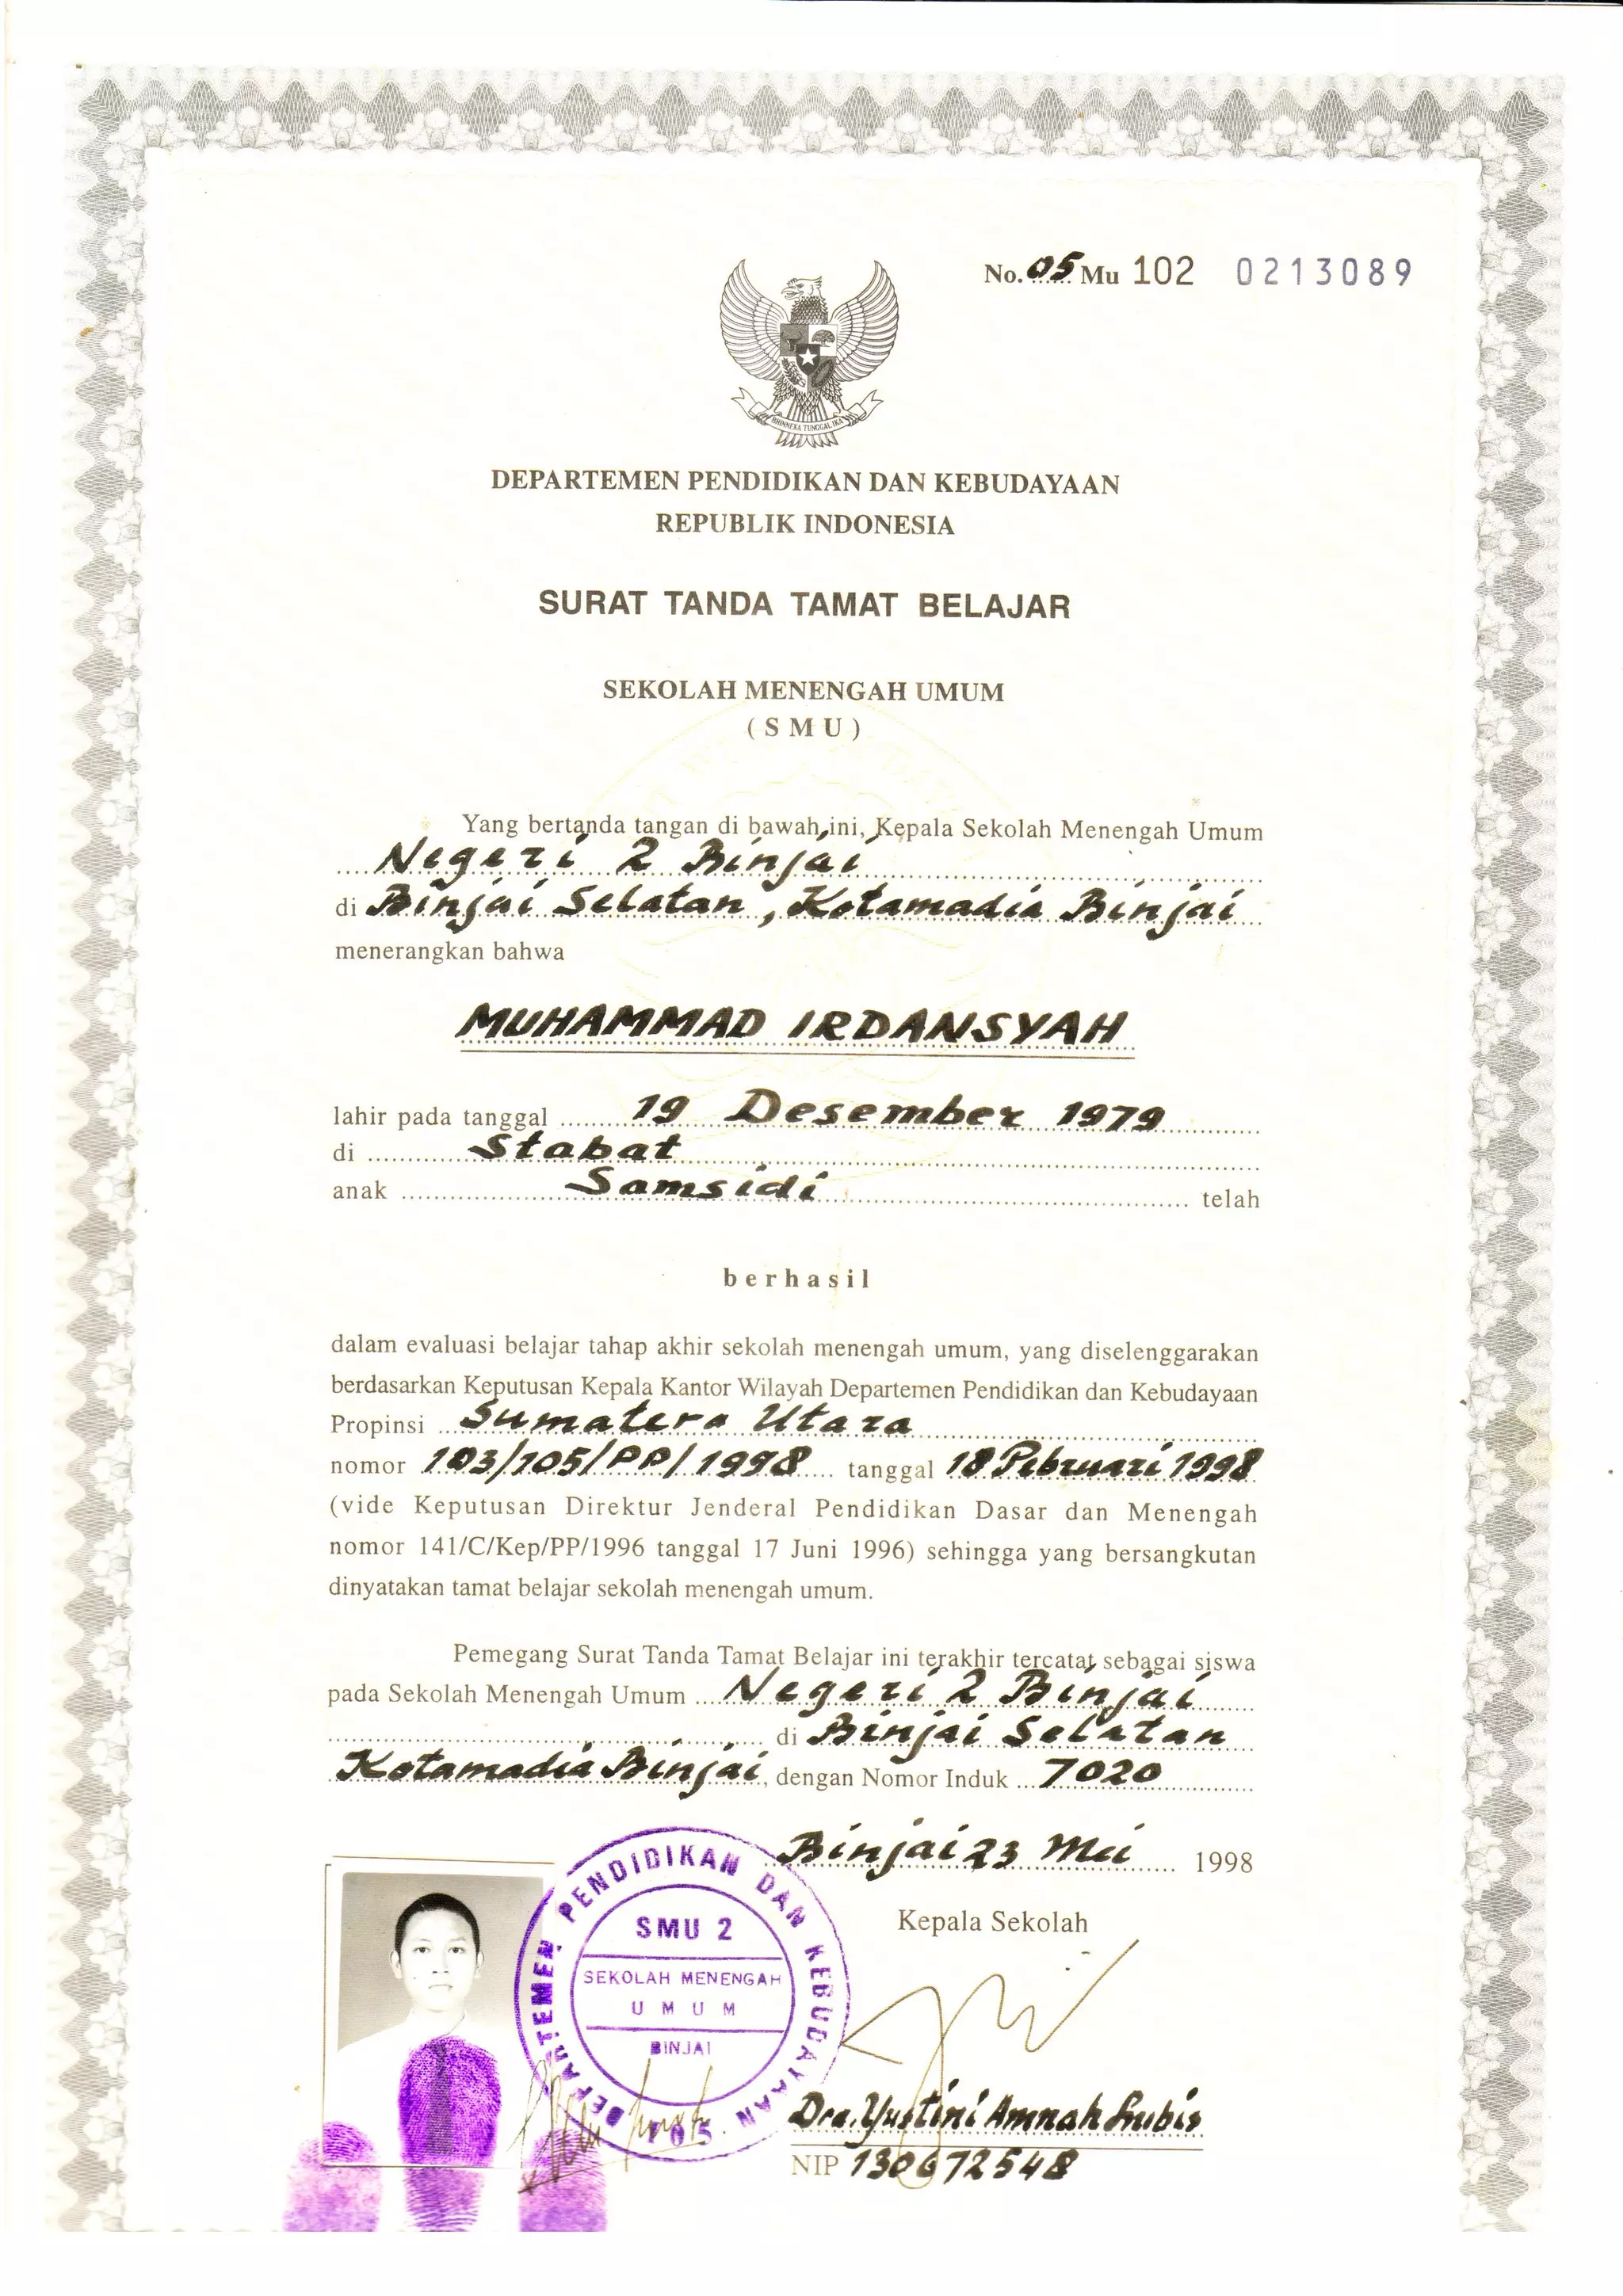 No. 05 Mu 102 0213089
BHINNEKA TUNGGAL IKA
DEPARTEMEN PENDIDIKAN DAN KEBUDAYAAN
REPUBLIK INDONESIA
SURAT TANDA TAMAT BELAJAR
SEKOLAH MENENGAH UMUM
( S M U )
Yang bertanda tangan di bawah ini, Kepala Sekolah Menengah Umum
Negeri 2 Binjai
di Binjai Selatan, Kotamadia Binjai
menerangkan bahwa
MUHAMMAD IRDANSYAH
lahir pada tanggal 19 Desember 1979
di Stabat
anak Samsidi telah
berhasil
dalam evaluasi belajar tahap akhir sekolah menengah umum, yang diselenggarakan
berdasarkan Keputusan Kepala Kantor Wilayah Departemen Pendidikan dan Kebudayaan
Propinsi Sumatera Utara
nomor 103/105/PP/1998 tanggal 18 Pebruari 1998
(vide Keputusan Direktur Jenderal Pendidikan Dasar dan Menengah
nomor 141/C/Kep/PP/1996 tanggal 17 Juni 1996) sehingga yang bersangkutan
dinyatakan tamat belajar sekolah menengah umum.
Pemegang Surat Tanda Tamat Belajar ini terakhir tercatat sebagai siswa
pada Sekolah Menengah Umum Negeri 2 Binjai
di Binjai Selatan
Kotamadia Binjai, dengan Nomor Induk 7020
Binjai 23 Mei 1998
Kepala Sekolah
DEPARTEMEN PENDIDIKAN DAN KEBUDAYAAN
SMU 2
SEKOLAH MENENGAH
U M U M
BINJAI
105
Dra. Yustini Amnah Lubis
NIP 130672548